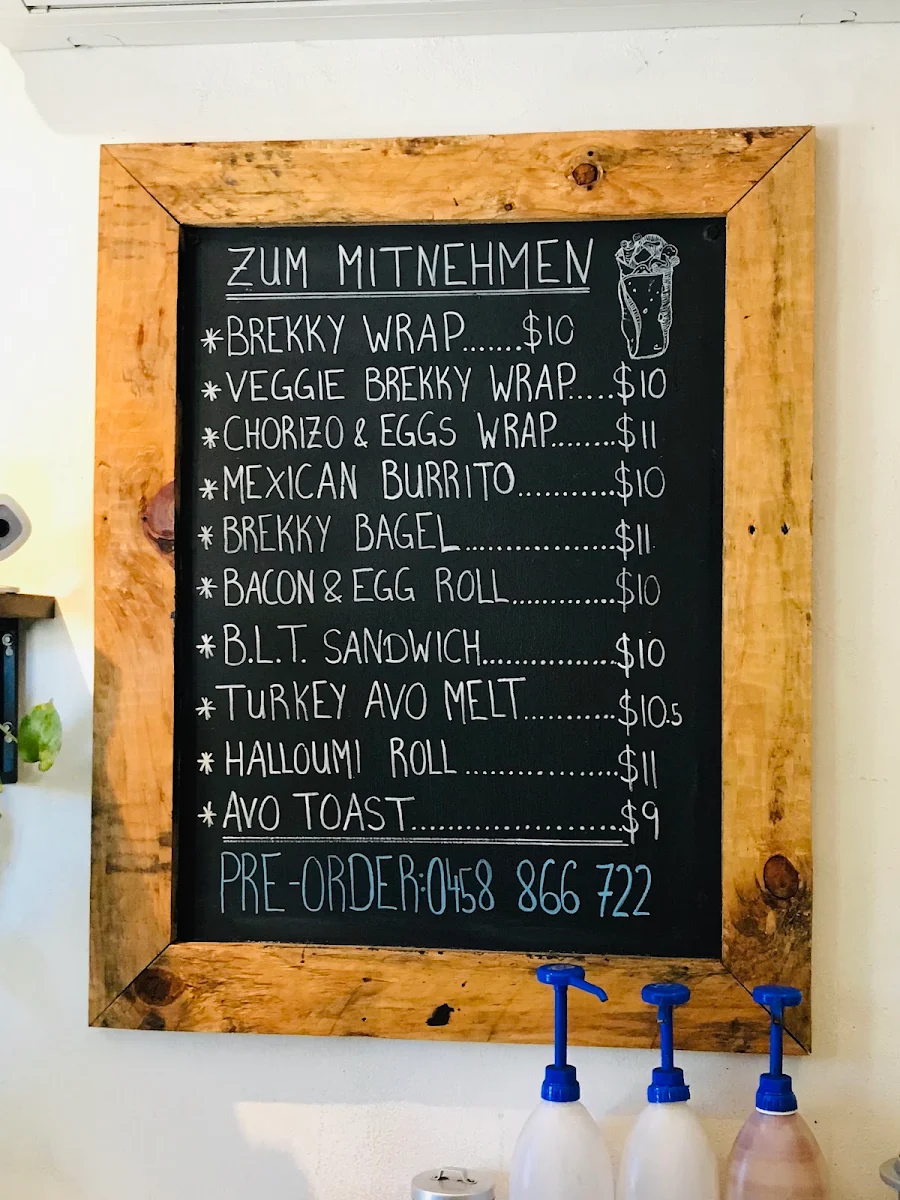 ZUM MITNEHMEN
*BREKKY WRAP.......$10
*VEGGIE BREKKY WRAP.....$10
*CHORIZO & EGGS WRAP........$11
*MEXICAN BURRITO............$10
*BREKKY BAGEL..................$11
*BACON & EGG ROLL.............$10
*B.L.T. SANDWICH................$10
*TURKEY AVO MELT............$10.5
*HALLOUMI ROLL..................$11
*AVO TOAST.........................$9
PRE-ORDER:0458 866 722